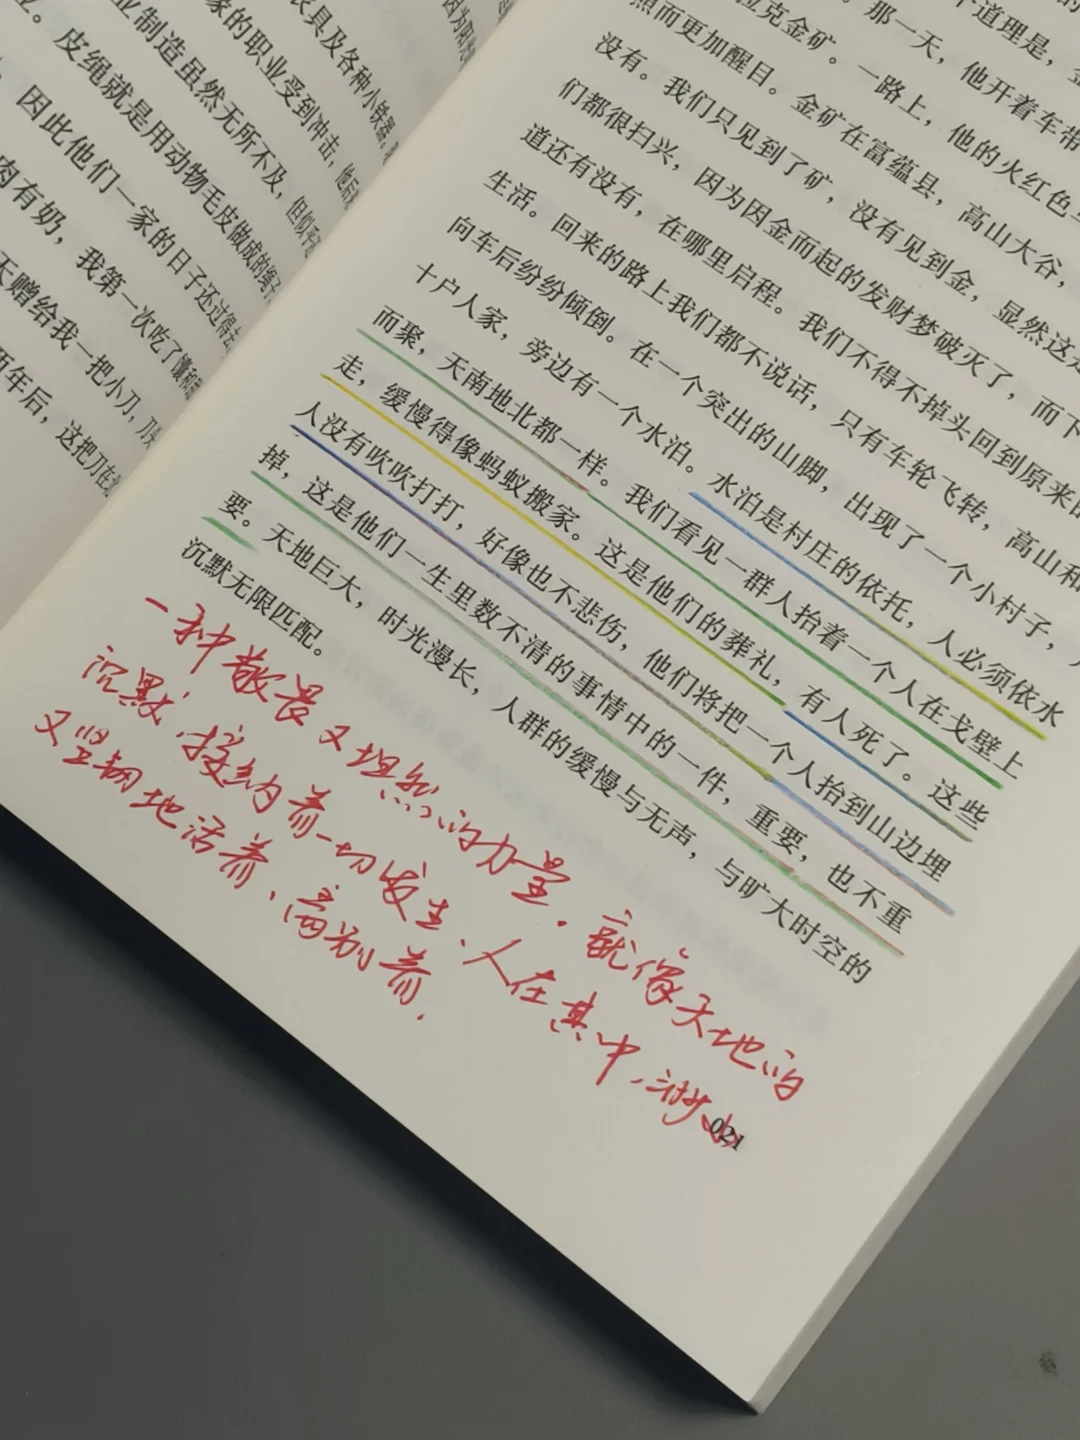 业制造虽然无所不及，但似乎
家的职业受到冲击，他
农具及各种小铁器。
因为
业。皮绳就是用动物毛皮做成的绳子
因此他们一家的日子还过得去
肉有奶，我第一次吃了馕和
天赠给我一把小刀，刀
两年后，这把刀在
个道理是，金
那一天，他开着车带
拉克金矿。一路上，他的火红色
然而更加醒目。金矿在富蕴县，高山大谷，
没有。我们只见到了矿，没有见到金，显然这
们都很扫兴，因为因金而起的发财梦破灭了，而下
道还有没有，在哪里启程。我们不得不掉头回到原来的
生活。回来的路上我们都不说话，只有车轮飞转，高山和
向车后纷纷倾倒。在一个突出的山脚，出现了一个小村子，
十户人家，旁边有一个水泊。水泊是村庄的依托，人必须依水
而聚，天南地北都一样。我们看见一群人抬着一个人在戈壁上
走，缓慢得像蚂蚁搬家。这是他们的葬礼，有人死了。这些
人没有吹吹打打，好像也不悲伤，他们将把一个人抬到山边埋
掉，这是他们一生里数不清的事情中的一件，重要，也不重
要。天地巨大，时光漫长，人群的缓慢与无声，与旷大时空的
沉默无限匹配。
一种敬畏又坦然的力量。就像天地的
沉默，接纳着一切发生、人在其中，渺小
又坚韧地活着、离别着.
021